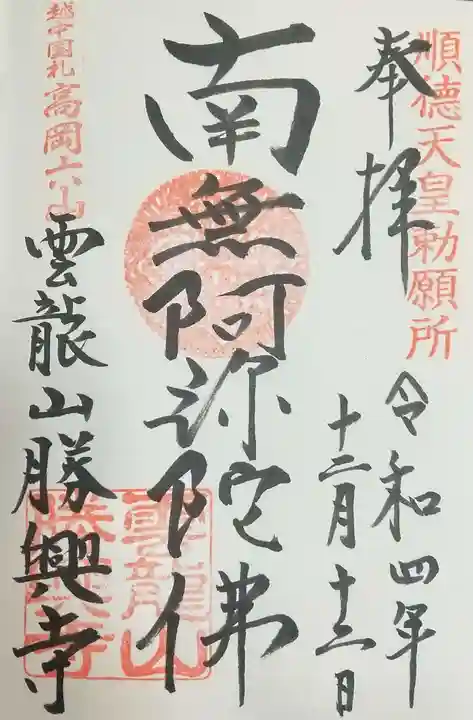 順徳天皇勅願所
奉拝
令和四年
十二月十三日
南無阿弥陀佛
越中国札
雲龍山勝興寺
雲龍山
勝興寺